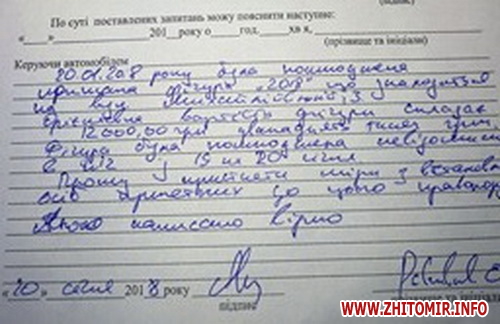 (підпис)
По суті поставлених запитань можу пояснити наступне:
«____»____________201__року о____год.____хв я,
(прізвище та ініціали)
Керуючи автомобілем
20.01.2018 року була пошкоджена
фігура „2018" що знаходиться
на вул. Михайлівській, 3
вартість фігури складає
12000,00 грн дванадцять тисяч грн.
Фігура була пошкоджена невідомими
в ніч з 19 на 20 січня
Прошу прийняти міри з встанов
осіб причетних до цього правопор
написано вірно
«20» січня 2018 року
підпис
прізвище та ініціа
www.ZHITOMIR.INFO